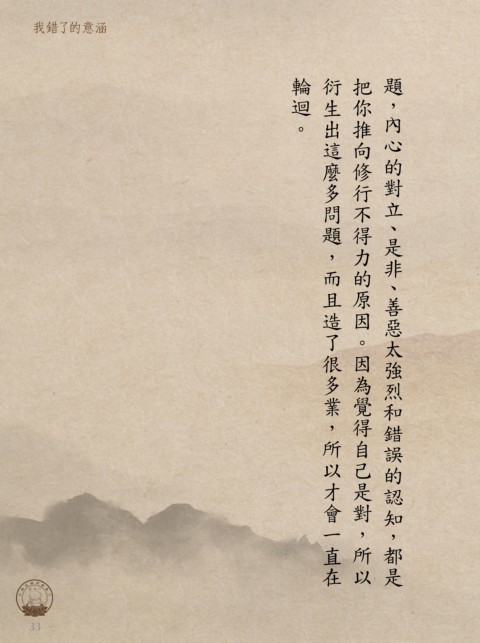 我錯了的意涵
題，內心的對立、是非、善惡太強烈和錯誤的認知，都是
把你推向修行不得力的原因。因為覺得自己是對，所以
衍生出這麼多問題，而且造了很多業，所以才會一直在
輪迴。
33